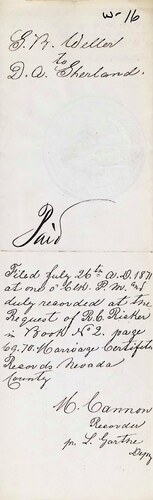 W-16
G. R. Weller
to
D. A. Sherland.
Paid
Filed July 26th A.D. 1871
at one o'Clk. P.M. and
duly recorded at the
Request of R.C. Risker
in Book No 2. page
69.70. Marriage Certificate
Records Nevada
County
M. Cannon
Recorder
pr. L. Garthe
Depy